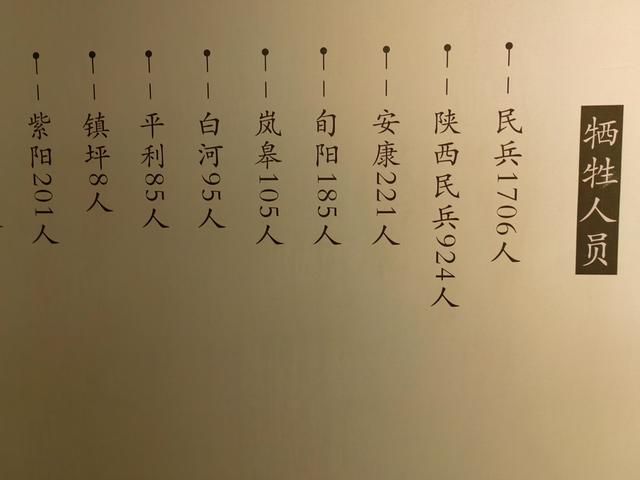 牺牲人员
民兵1706人
陕西民兵924人
安康221人
旬阳185人
岚皋105人
白河95人
平利85人
镇坪8人
紫阳201人